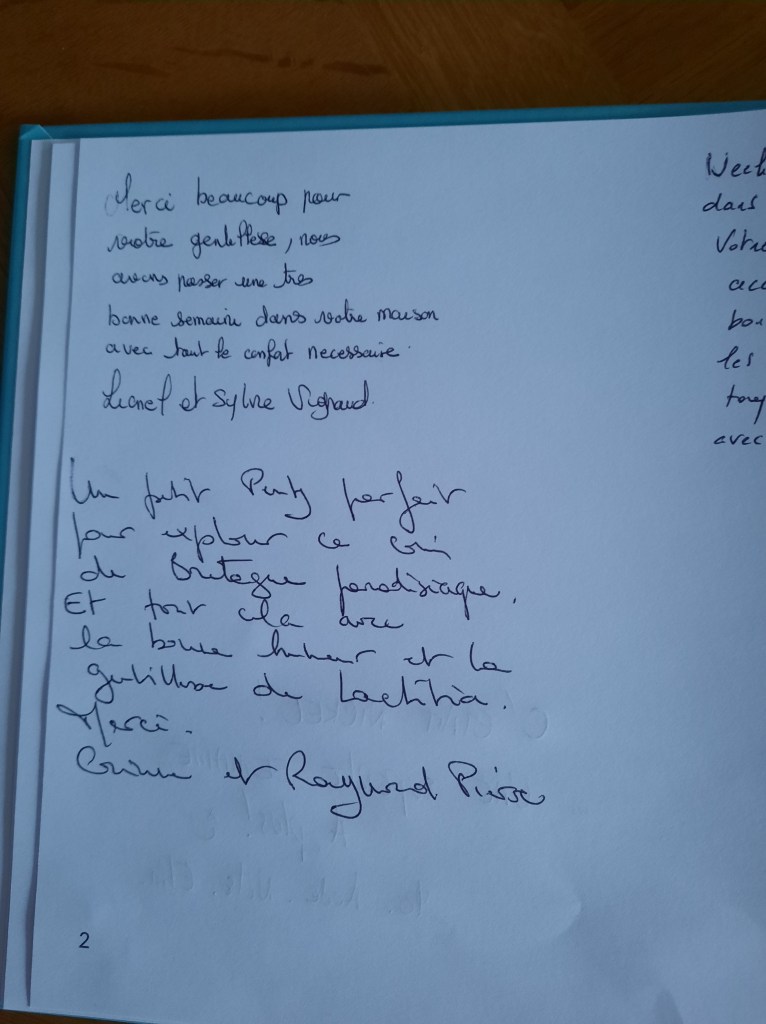 Merci beaucoup pour
votre gentillesse, nous
avons passer une tres
bonne semaine dans votre maison
avec tout le confort necessaire.
Lionel et Sylvie Vignaud.
Un petit Penty parfait
pour explorer ce coin
de Bretagne paradisiaque.
Et tout cela avec
la bonne humeur et la
gentillesse de Laetitia.
Merci.
et Raymond Pierre
2
dans
Votre
les
avec